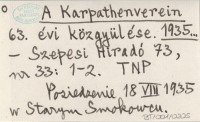 A Karpathenverein
63. évi közgyülése. 1935...
- Szepesi Hiradó 73,
nr 33: 1-2. TNP
Posiedzenie 18 VIII 1935
w Starym Smokowcu.